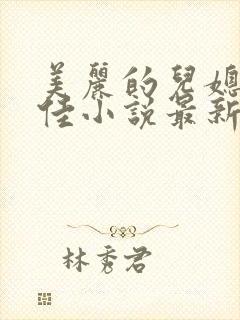 美麗的兒媳
佳小說最新
林秀君